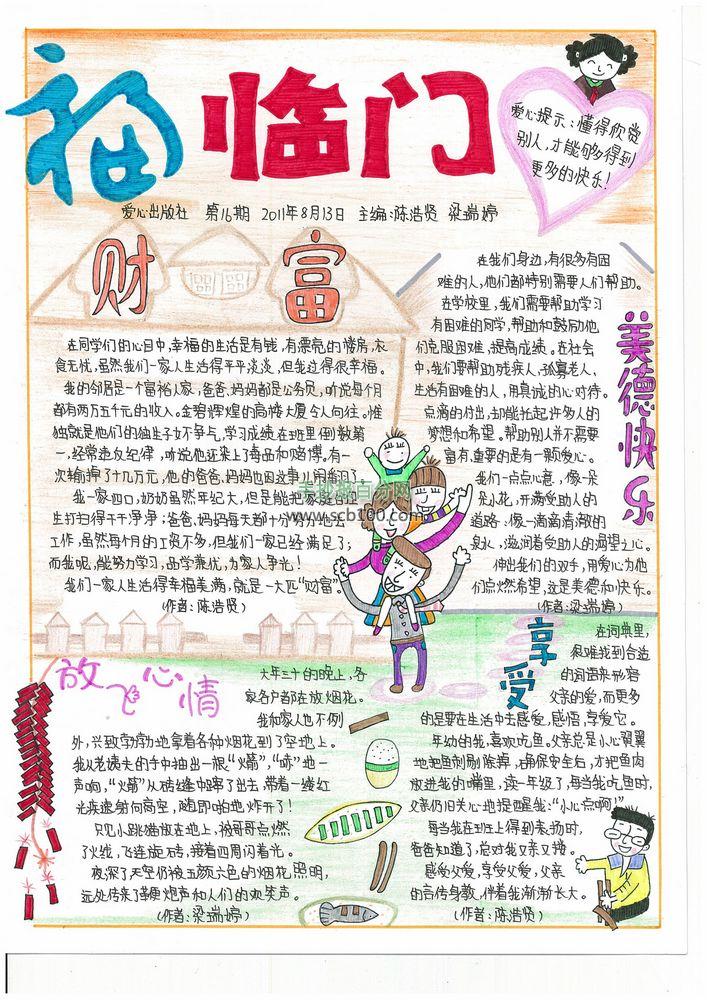 福临门
爱心提示：懂得欣赏
别人，才能够多得到
更多的快乐！
爱心出版社 第16期 2011年8月13日 主编：陈浩贤 梁瑞婷
财富
在同学们的心目中，幸福的生活是有钱，有漂亮的楼房，衣
食无忧，虽然我们一家人生活得平平淡淡，但我过得很幸福。
我的邻居是一个富裕人家，爸爸、妈妈都是公务员，听说每个月
都有两万五千元的收入。金碧辉煌的高楼大厦令人向往。惟
独就是他们的独生子好不争气，学习成绩在班里倒数第
一，经常违反纪律，听说他还染上了毒品和赌博。有一
次输掉了十几万元，他的爸爸、妈妈也因这事儿闹翻了。
我一家四口，奶奶虽然年纪大，但是能把家庭的卫
生打扫得干干净净；爸爸、妈妈每天都十分努力地去
工作，虽然每个月的工资不多，但我们一家已经满足了；
而我呢，能努力学习，品学兼优，为家人争光！
我们一家人生活得幸福美满，就是一大匹“财富”。
（作者：陈浩贤）
美德快乐
在我们身边，有很多有困
难的人，他们都特别需要人们帮助。
在学校里，我们需要帮助学习
有困难的同学，帮助和鼓励他
们克服困难，提高成绩。在社会
中，我们要帮助残疾人、孤寡老人、
生活有困难的人，用真诚的心对待。
点滴的付出，却能托起许多人的
梦想和希望。帮助别人并不需要
富有，重要的是有一颗爱心。
我们一点点心意，像一朵
朵小花，开满受助人的
道路，像一滴滴清澈的
泉水，滋润着受助人的渴望之心。
伸出我们的双手，用爱心为他
们点燃希望，这是美德和快乐。
（作者：梁瑞婷）
手抄报百分网
www.scb100.com
放飞心情
大年三十的晚上，各
家各户都在放烟花。
我和家人也不例
外，兴致勃勃地拿着各种烟花到了空地上。
我从老姨夫的手中抽出一根“火箭”，“嘭”地一
声响，“火箭”从砖缝中蹿了出去，带着一缕红
光疾速射向高空，随即啪地炸开了！
只见小跳猫放在地上，被哥哥点燃
了火线，飞速旋转，接着四周闪着光。
夜深了天空仍被五颜六色的烟花照明，
远处传来了鞭炮声和人们的欢笑声。
（作者：梁瑞婷）
享受
在词典里，
很难找到合适
的词语来形容
父亲的爱，而更多
的是要在生活中去感爱，感悟，享爱它。
年幼的我，喜欢吃鱼。父亲总是小心翼翼
地把鱼刺剔除掉，确保安全后，才把鱼肉
放进我的嘴里，读一年级了，每当我吃鱼时，
父亲仍旧关心地提醒我：“小心点啊！”
每当我在班上得到表扬时，
爸爸知道了，总对我又亲又搂。
感受父爱，享受父爱，父亲
的言传身教，伴着我渐渐长大。
（作者：陈浩贤）